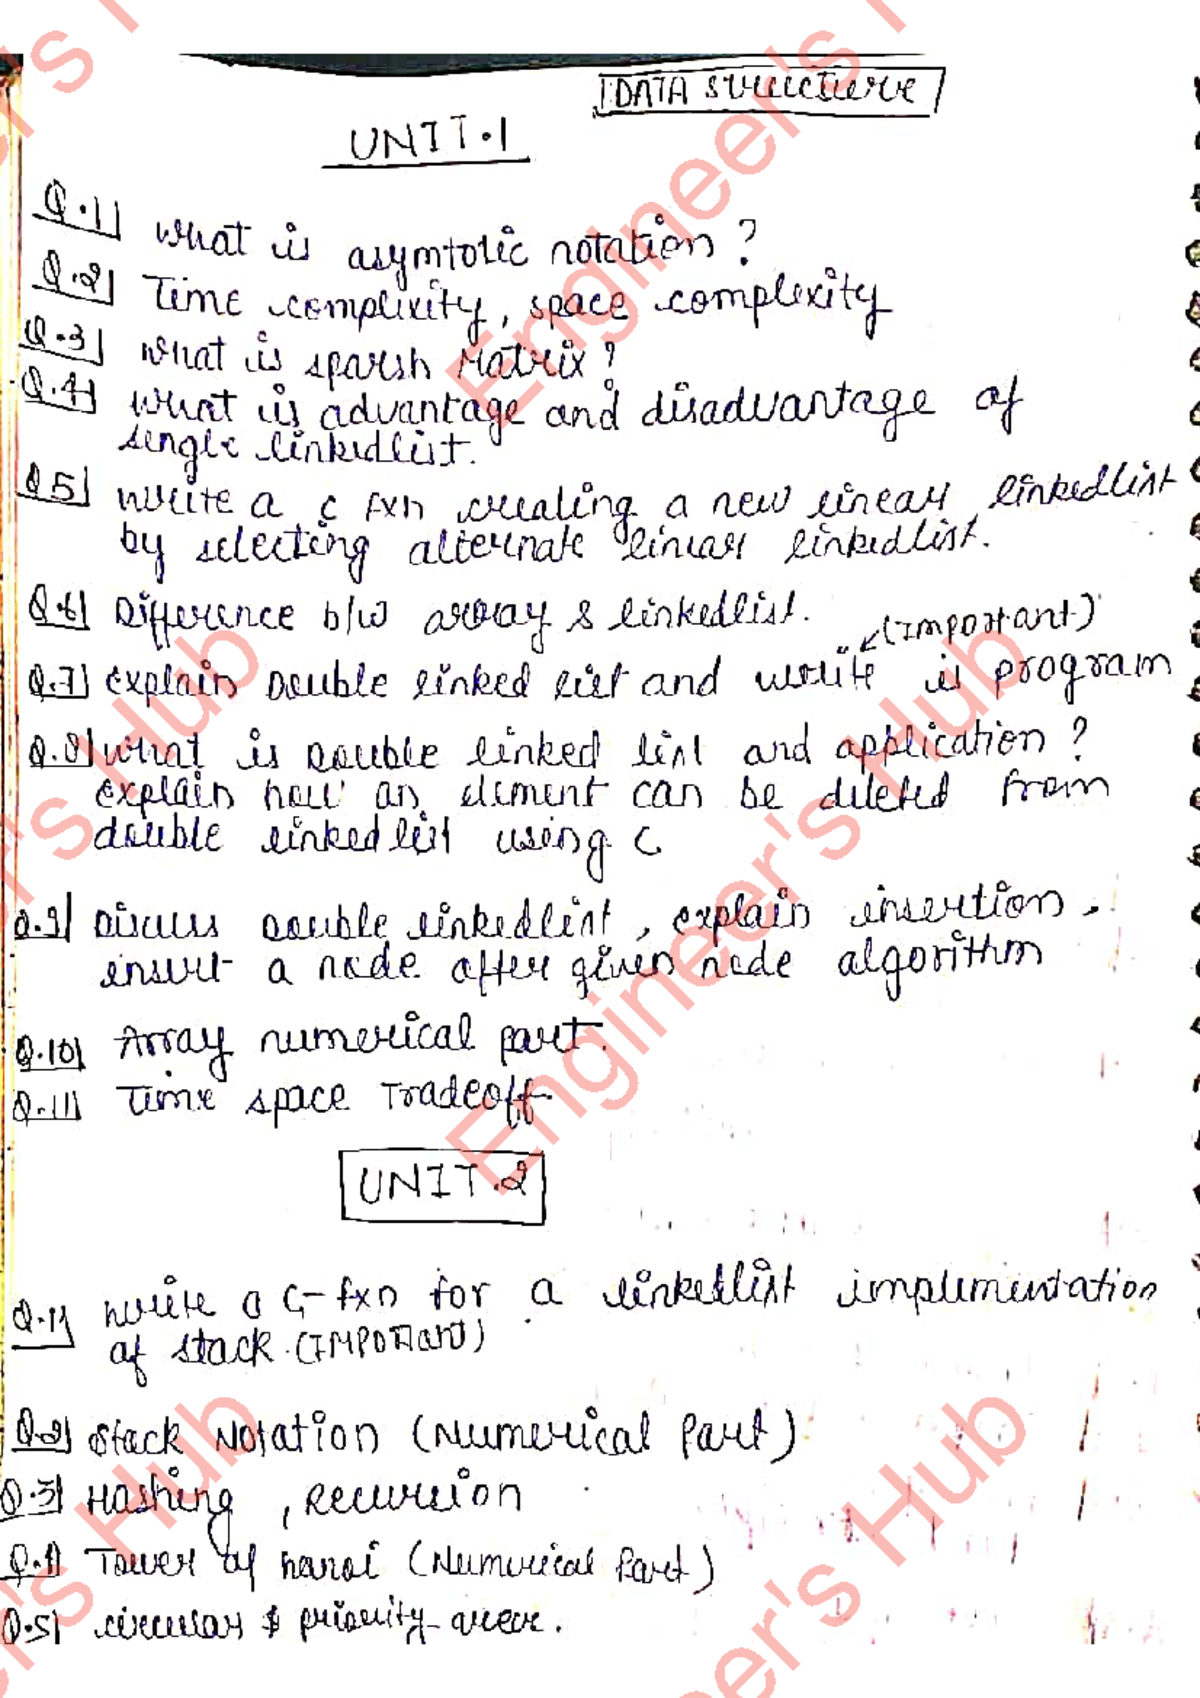 DATA Structure
UNIT.1
Q.1 What is asymtotic notation?
Q.2 Time complixity, space complexity
Q.3 What is sparsh Matrix?
Q.4 What is advantage and disadvantage of
single linkedlist.
Q5 Write a c fxn creating a new linear linkedlist
by selecting alternate linear linkedlist.
Q.6 Difference b/w array & linkedlist.
(Important)
Q.7 explain Double linked list and write is program
Q.8 what is Double linked list and application?
explain how an element can be deleted from
double linkedlist using C
Q.9 Discuss Double linkedlist, explain insertion,
insert a node after given node algorithm
Q.10 Array numerical part.
Q.11 Time space Tradeoff.
UNIT.2
Q.1 write a C-fxn for a linkedlist implementation
of stack. (IMPORTANT)
Q.2 Stack Notation (Numerical Part)
Q.3 Hashing, Recursion
Q.4 Tower of hanoi (Numerical Part)
Q.5 circular & priority queue.
Engineer's Hub
Engineer's Hub